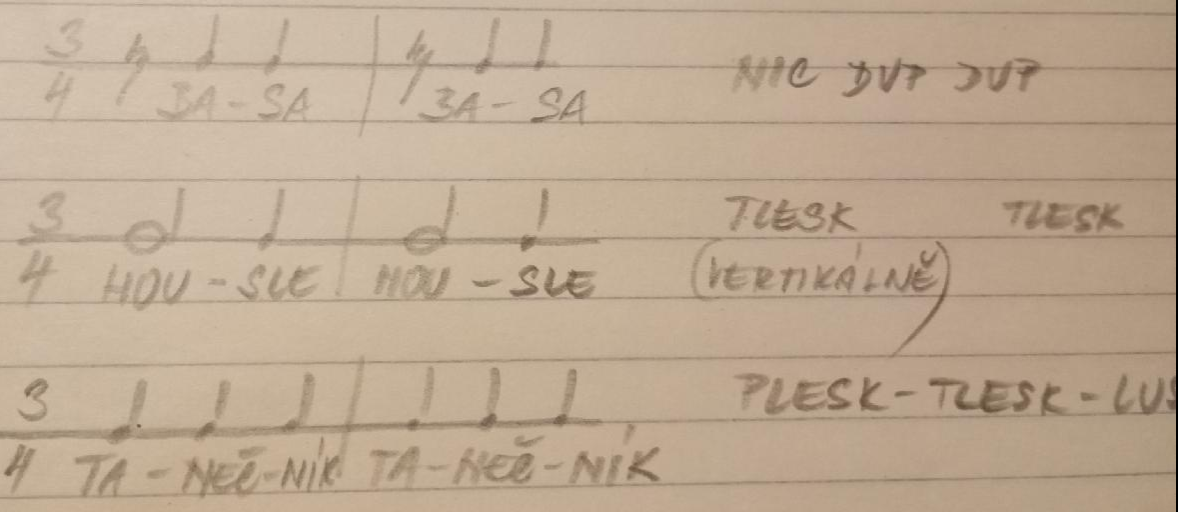 3/4 BA - SA | BA - SA NIC DUP DUP
3/4 HOU - SLE | HOU - SLE TLESK TLESK
(VERTIKÁLNĚ)
3/4 TA - NEČ - NÍK | TA - NEČ - NÍK PLESK - TLESK - LUS